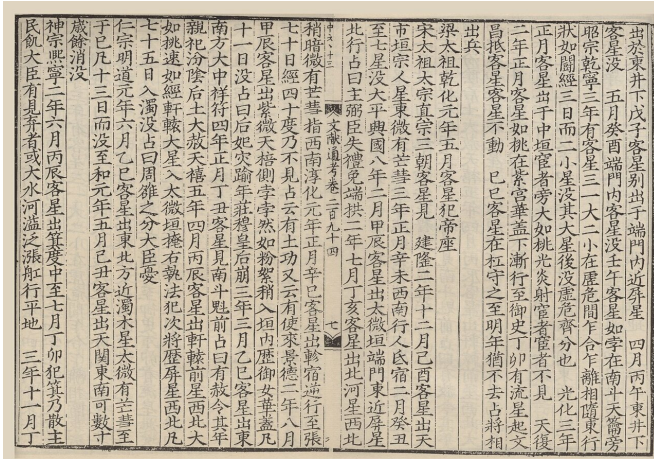 出於東井下戊子客星别出于端門內近屏星　四月丙午東井下
客星没　五月癸酉端門內客星没壬午客星如孛在南斗天籥旁
昭宗乾寧三年有客星三一大二小在虛危間乍合乍離相隨東行
狀如鬭經三日而二小星没其大星後没虛危齊分也　光化三年
正月客星出于中垣宦者旁大如桃光炎射宦者宦者不見　天復
二年正月客星如桃在紫宫華蓋下漸行至御史丁卯有流星起文
昌抵客星客星不動　己巳客星在杠守之至明年猶不去占將相
出兵
梁太祖乾化元年五月客星犯帝座
宋太祖太宗真宗三朝客星見　建隆二年十二月己酉客星出天
市垣宗人星東微有芒彗三年正月辛未西南行入氐宿二月癸丑
至七星没太平興國八年二月甲辰客星出太微垣端門東近屏星
北行占曰主弼臣失禮免端拱二年七月丁亥客星出北河星西北
文獻通考卷二百九十四
七
稍暗微有芒彗指西南淳化元年正月辛巳客星出軫宿逆行至張
七十日經四十度乃不見占云有土功又云有使來景德二年八月
甲辰客星出紫微天棓側孛孛然如粉絮稍入垣內歷御女華蓋凡
十一日没占曰后妃灾踰年莊穆皇后崩三年三月乙巳客星出東
南方大中祥符四年正月丁丑客星見南斗魁前占曰有赦令其年
親祀汾陰后土大赦天禧五年四月丙辰客星出軒轅前星西北大
如桃速如經軒轅大星入太微垣掩右執法犯次將歷屏星西北凡
七十五日入濁没占曰周雒之分大臣憂
仁宗明道元年六月乙巳客星出東北方近濁木星太微有芒彗至
于巳凡十三日而没至和元年五月己丑客星出天關東南可數寸
歲餘消没
神宗熙寧二年六月丙辰客星出箕度中至七月丁卯犯箕乃散主
民飢大臣有見弃者或大水河溢泛漲舡行平地　三年十一月丁